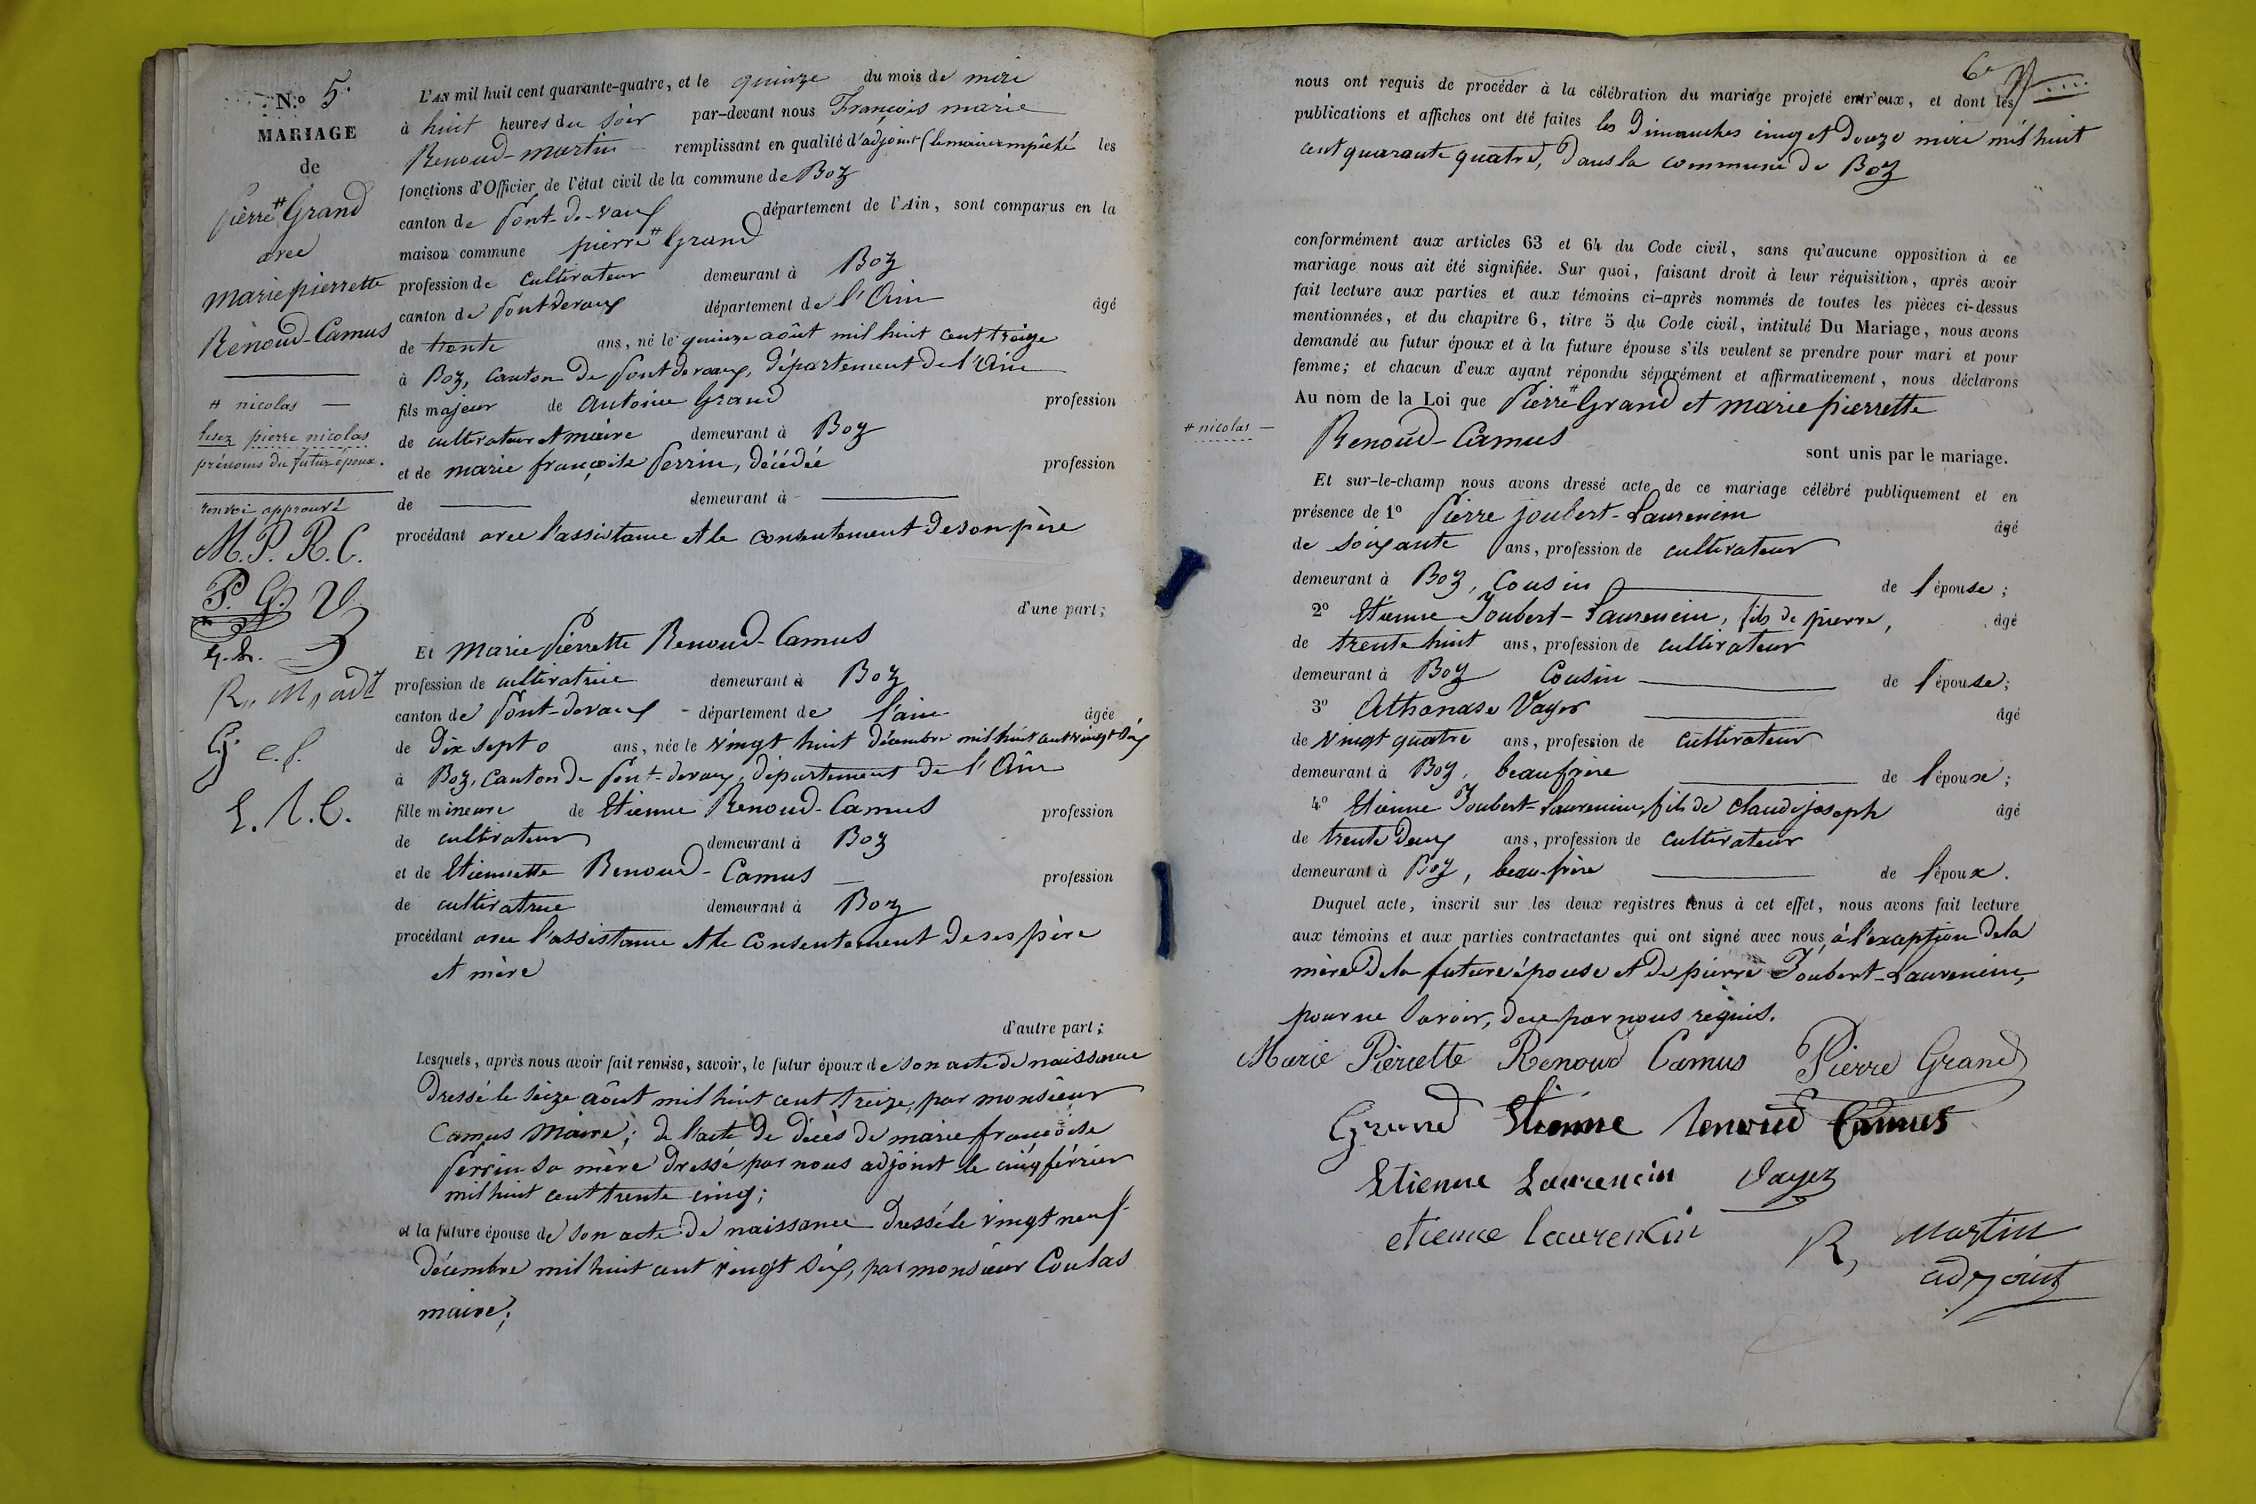 N.º 5.
MARIAGE
de
pierre # Grand
avec
marie pierrette
Renoud-Camus
# nicolas —
lisez pierre nicolas
prénoms du futur époux.
renvoi approuvé
M. P. R. C.
P. G. V.
R. M. adt
G. e. l.
E. R. C.
L'AN mil huit cent quarante-quatre, et le quinze du mois de mai
à huit heures du soir par-devant nous François marie
Renoud-martin remplissant en qualité d'adjoint (le maire empêché les
fonctions d'Officier de l'état civil de la commune de Boz
canton de Pont-de-vaux département de l'Ain, sont comparus en la
maison commune pierre # Grand
profession de cultivateur demeurant à Boz
canton de Pontdevaux département de l'Ain âgé
de trente ans, né le quinze août mil huit cent treize
à Boz, canton de Pontdevaux, département de l'Ain
fils majeur de antoine Grand profession
de cultivateur et maire demeurant à Boz
et de marie françoise Perrin, décédée profession
de demeurant à
procédant avec l'assistance et le consentement de son père
d'une part;
Et Marie Pierrette Renoud-Camus
profession de cultivatrice demeurant à Boz
canton de Pont-devaux département de l'ain âgée
de dix sept ans, née le vingt huit décembre mil huit cent vingt six
à Boz, Canton de Pont-devaux, département de l'Ain
fille mineure de Etienne Renoud-Camus profession
de cultivateur demeurant à Boz
et de Etiennette Renoud-Camus profession
de cultivatrice demeurant à Boz
procédant avec l'assistance et le consentement de ses père
et mère
d'autre part;
Lesquels, après nous avoir fait remise, savoir, le futur époux de son acte de naissance
dressé le seize août mil huit cent treize, par monsieur
Camus Maire; de l'acte de décès de marie françoise
Perrin sa mère dressé par nous adjoint le cinq février
mil huit cent trente cinq;
et la future épouse de son acte de naissance dressé le vingt neuf
décembre mil huit cent vingt six, par monsieur Coulas
maire;
6e
nous ont requis de procéder à la célébration du mariage projeté entr'eux, et dont les
publications et affiches ont été faites les Dimanches cinq et douze mai mil huit
cent quarante quatre, dans la commune de Boz
conformément aux articles 63 et 64 du Code civil, sans qu'aucune opposition à ce
mariage nous ait été signifiée. Sur quoi, faisant droit à leur réquisition, après avoir
fait lecture aux parties et aux témoins ci-après nommés de toutes les pièces ci-dessus
mentionnées, et du chapitre 6, titre 5 du Code civil, intitulé Du Mariage, nous avons
demandé au futur époux et à la future épouse s'ils veulent se prendre pour mari et pour
femme; et chacun d'eux ayant répondu séparément et affirmativement, nous déclarons
Au nom de la Loi que Pierre # Grand et marie pierrette
# nicolas —
Renoud-Camus
sont unis par le mariage.
Et sur-le-champ nous avons dressé acte de ce mariage célébré publiquement et en
présence de 1º Pierre joubert-Laurencin âgé
de soixante ans, profession de cultivateur
demeurant à Boz, Cousin de l'épouse;
2º Etienne Joubert-Laurencin, fils de pierre, âgé
de trente huit ans, profession de cultivateur
demeurant à Boz Cousin de l'épouse;
3º Athanase Vayer âgé
de vingt quatre ans, profession de cultivateur
demeurant à Boz, beaufrère de l'époux;
4º Etienne Joubert-Laurencin, fils de claude joseph âgé
de trente Deux ans, profession de cultivateur
demeurant à Boz, beau-frère de l'époux.
Duquel acte, inscrit sur les deux registres tenus à cet effet, nous avons fait lecture
aux témoins et aux parties contractantes qui ont signé avec nous, à l'exception de la
mère de la future épouse et de pierre Joubert-Laurencin,
pour ne savoir, de ce par nous requis.
Marie Pierrette Renoud Camus Pierre Grand
Grand Etienne Renoud Camus
Etienne Laurencin Vayer
etienne laurencin R, Martin
adjoint